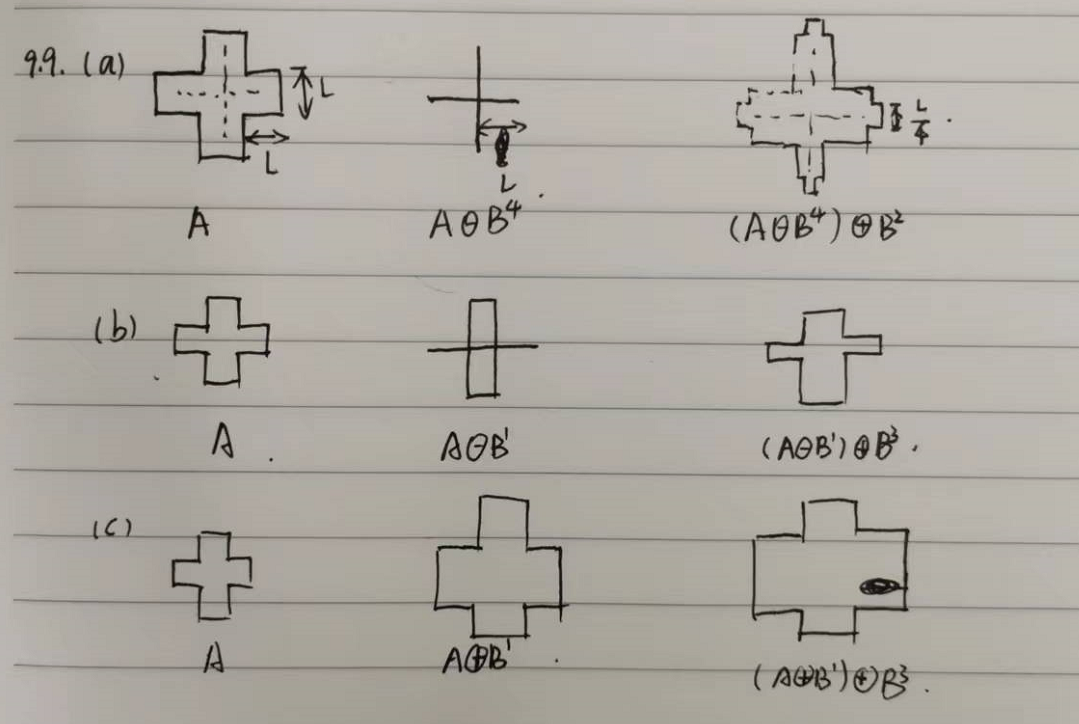 9.9. (a)
L
L
L
L/4 .
A
A⊖B⁴
(A⊖B⁴)⊕B²
(b)
A .
A⊖B¹
(A⊖B¹)⊕B³ .
(c)
A
A⊕B¹ .
(A⊕B¹)⊕B³ .